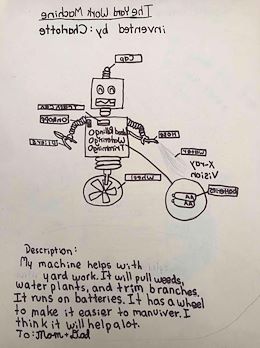 The Yard Work Machine
invented by: Charlotte
Cap
On/Off
Hose
Pliers
water
X-ray
Vision
batteries
AA
AA
Wheel
Description:
My machine helps with
yard work. It will pull weeds,
water plants, and trim branches.
It runs on batteries. It has a wheel
to make it easier to manuiver. I
think it will help alot.
To: Mom + Dad